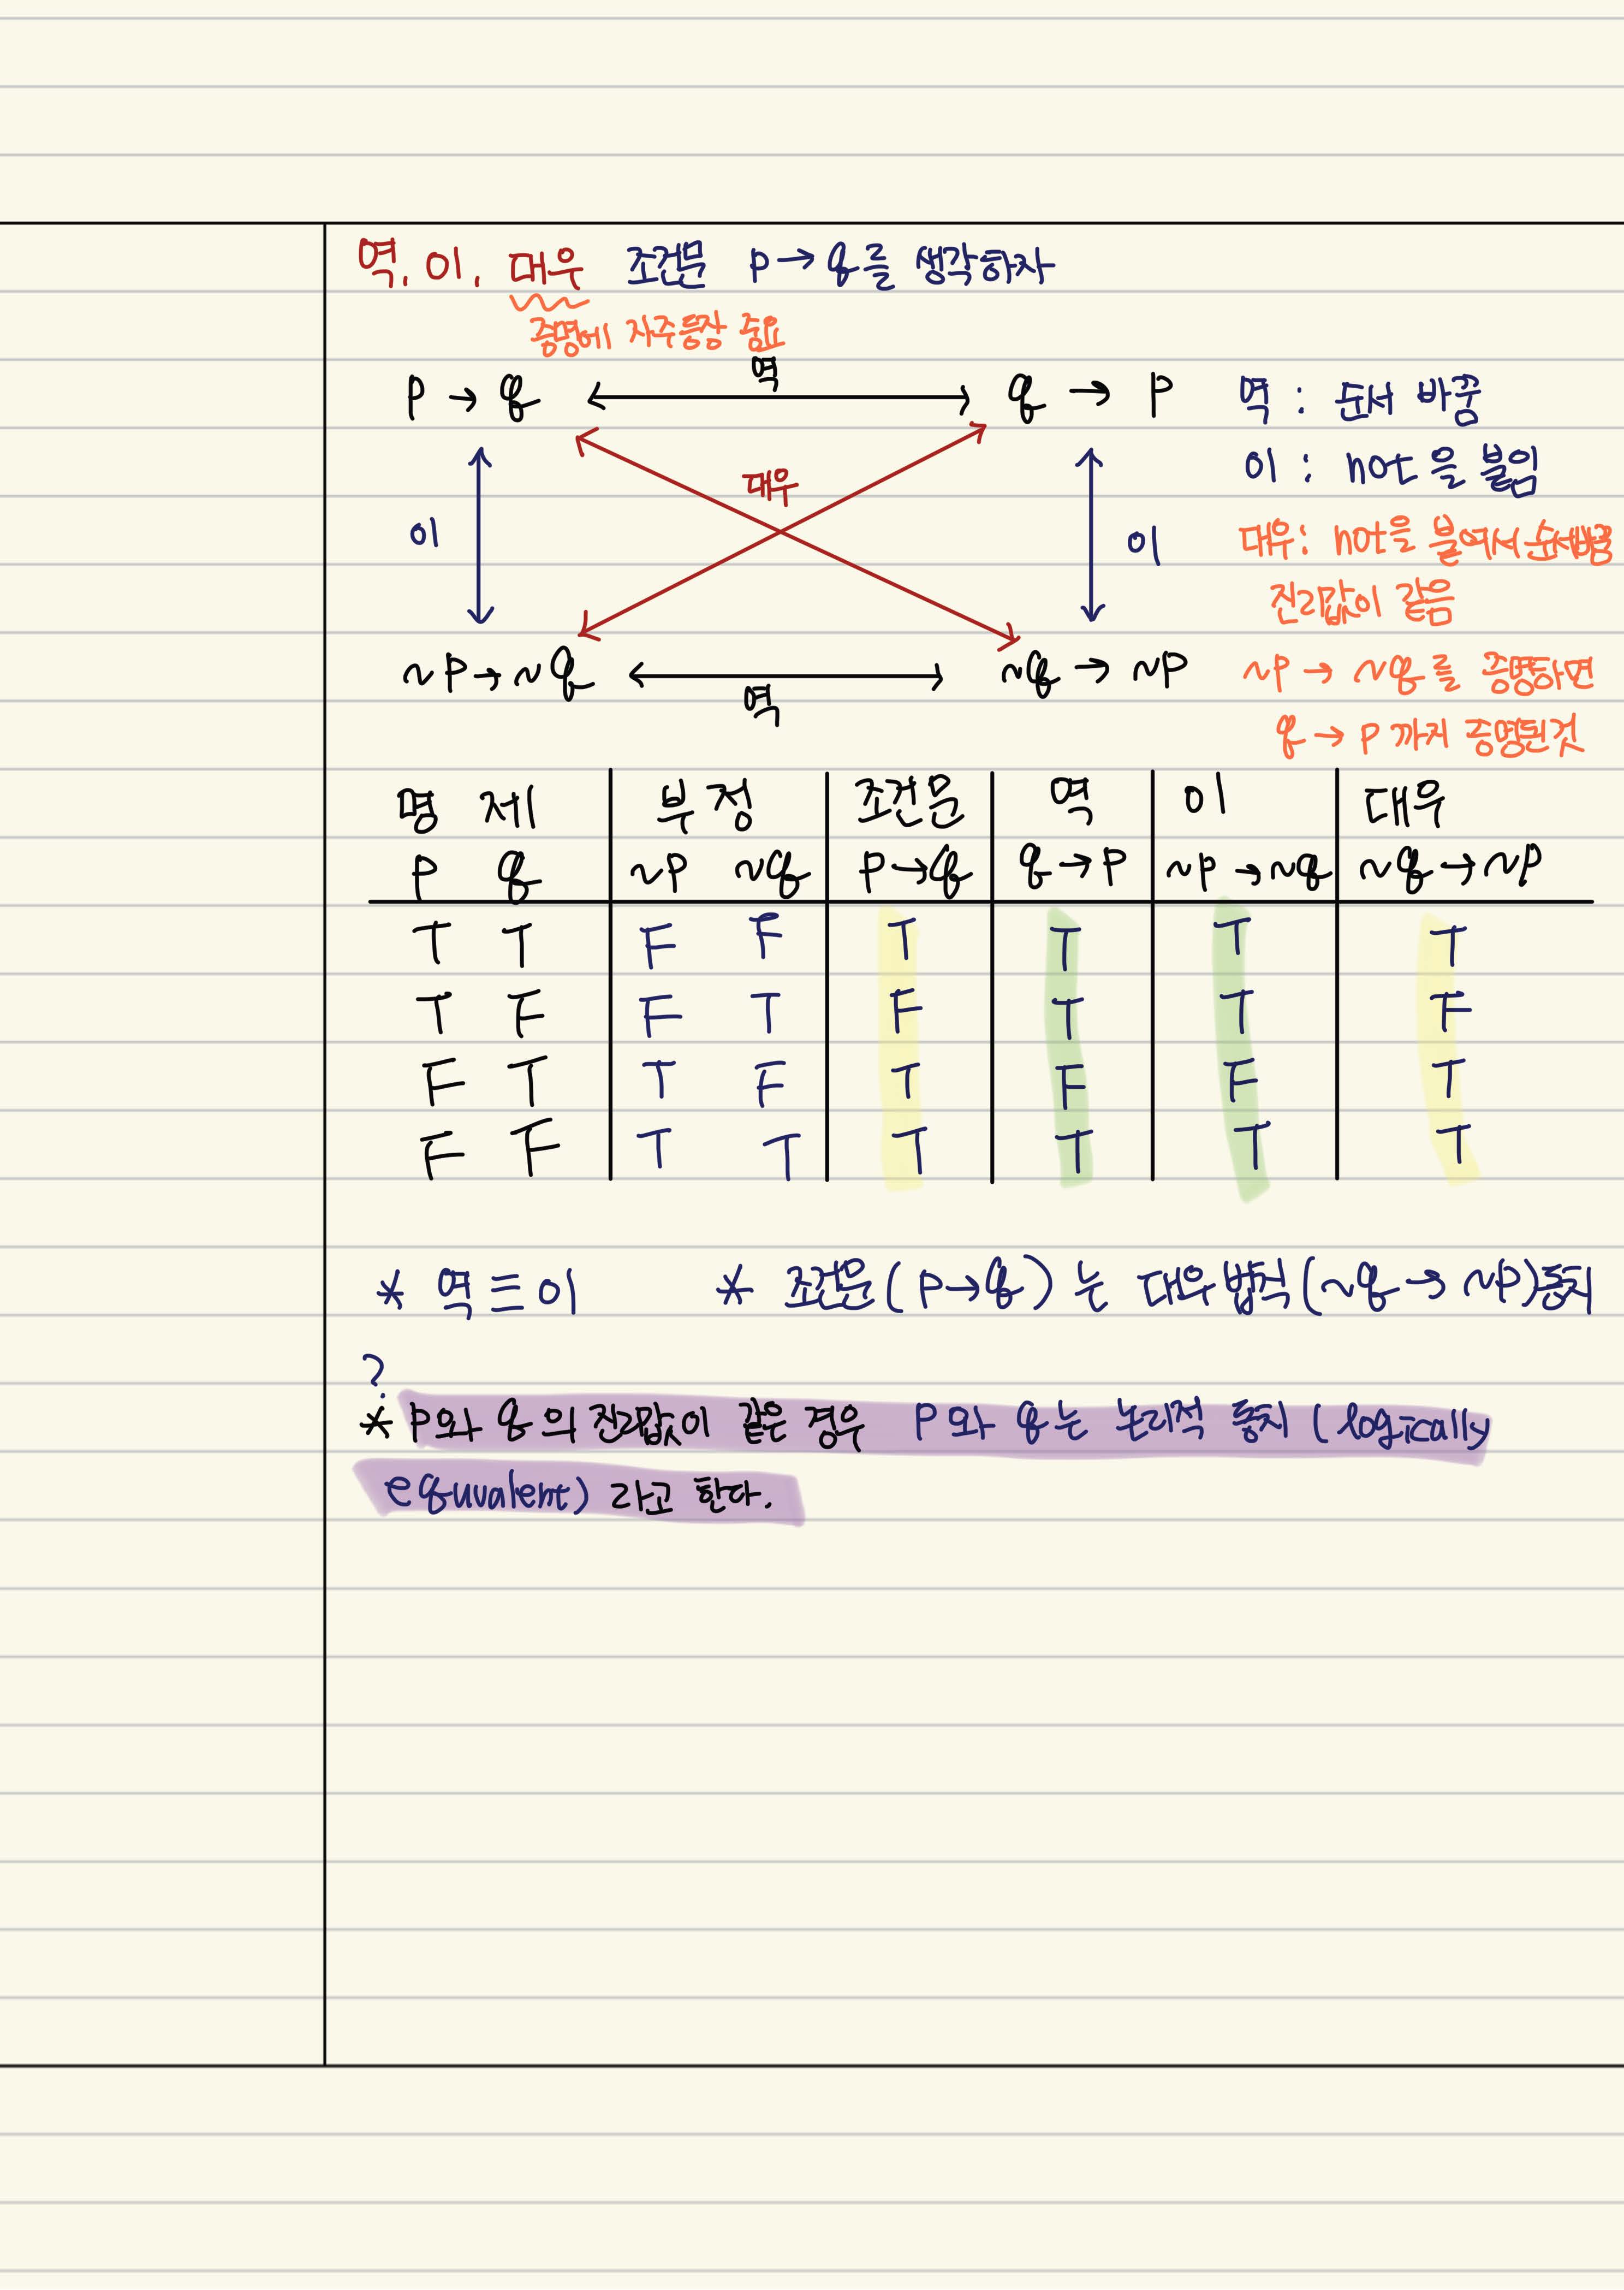 역, 이, 대우 조건문 P → q를 생각하자
증명에 자주등장 중요
역
P → q q → P 역 : 순서 바꿈
이 : not 을 붙임
대우
이 이 대우: not을 붙여서 순서바꿈
진리값이 같음
~P → ~q ~q → ~P ~P → ~q 를 증명하면
역
q → P 까지 증명된것
명 제 부 정 조건문 역 이 대우
P q ~P ~q P → q q → P ~P → ~q ~q → ~P
T T F F T T T T
T F F T F T T F
F T T F T F F T
F F T T T T T T
* 역 ≡ 이 * 조건문 ( P → q ) 는 대우 법칙 ( ~q → ~P ) 동치
?
* P와 q 의 진리값이 같은 경우 P 와 q 는 논리적 동치 ( logically
equuvalent) 라고 한다.